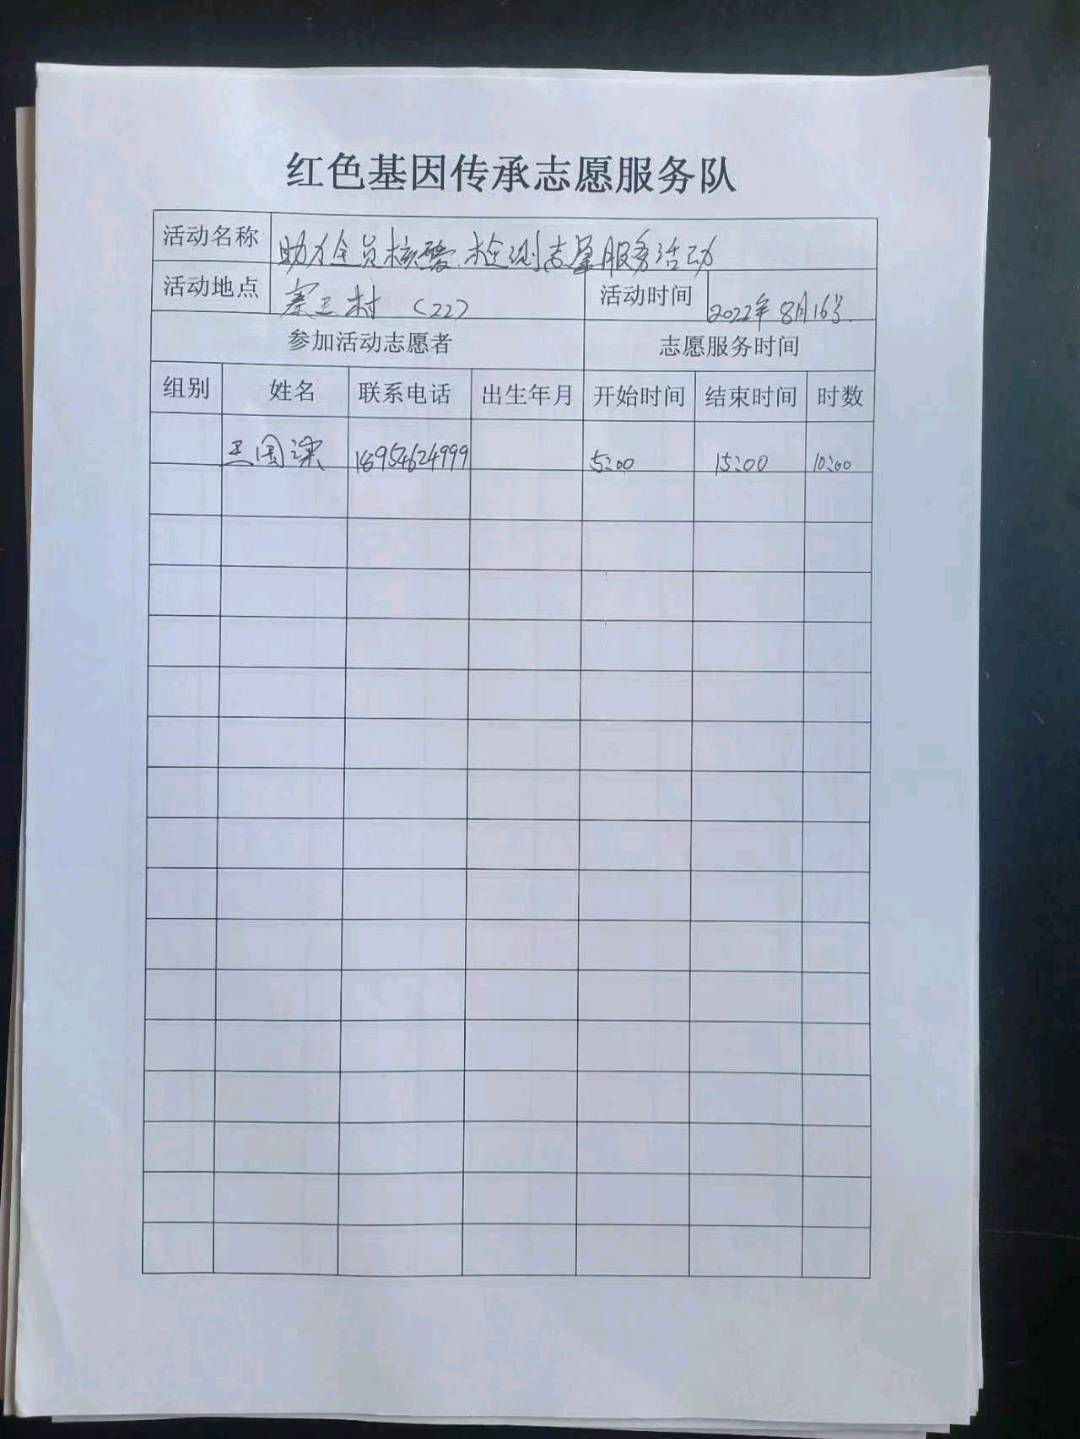 红色基因传承志愿服务队
活动名称 助力全员核酸检测志愿服务活动
活动地点 王村（22） 活动时间 2022年8月16号
参加活动志愿者 志愿服务时间
组别 姓名 联系电话 出生年月 开始时间 结束时间 时数
王国 18954624999 5:00 15:00 10:00